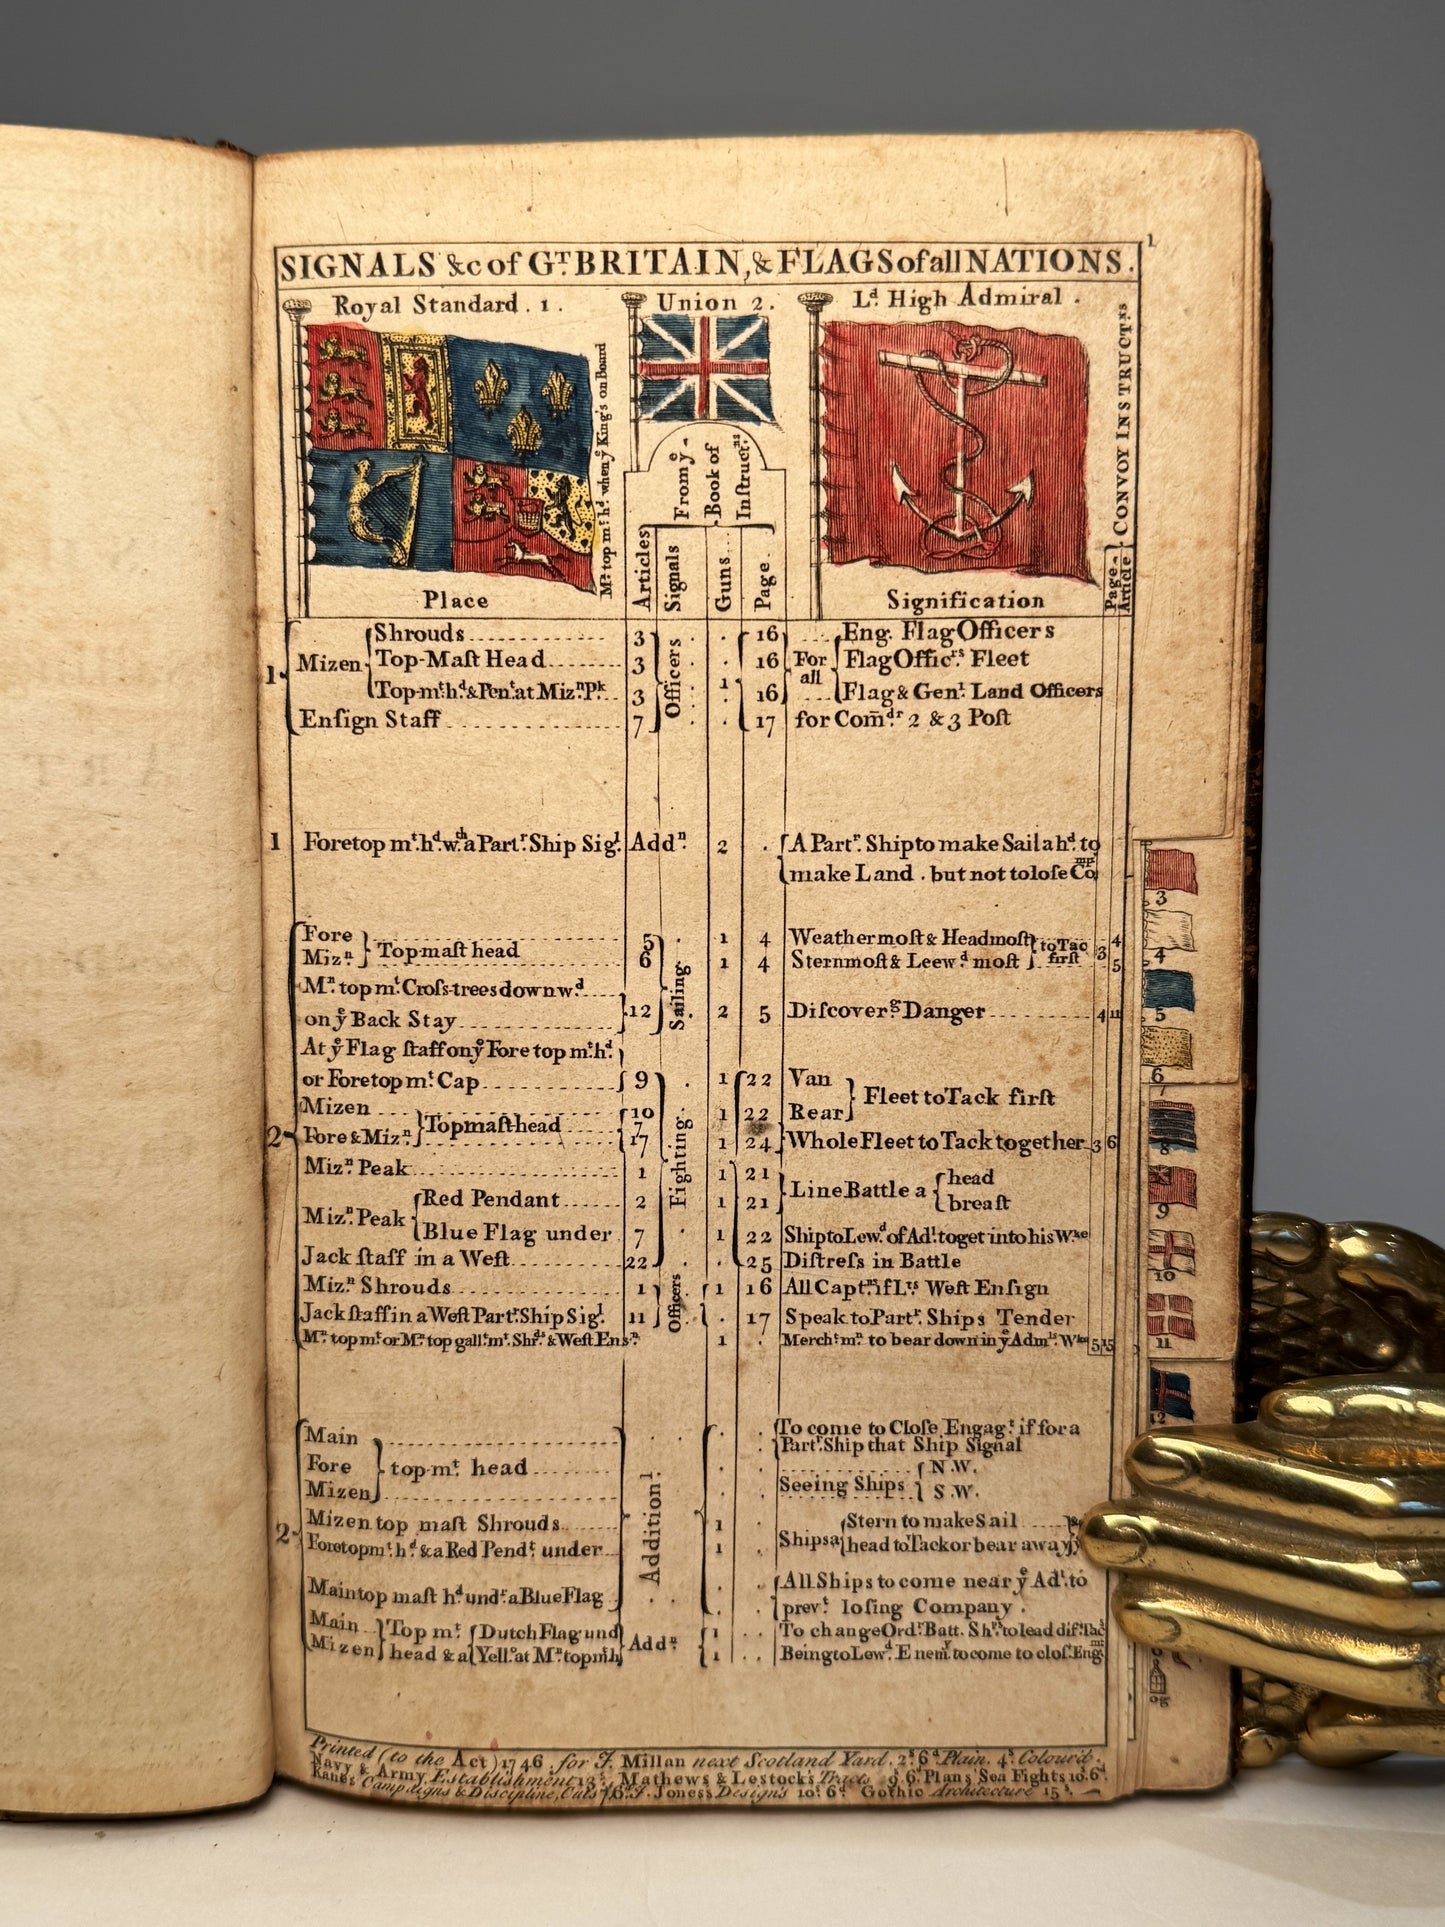 1
SIGNALS &c of G.T BRITAIN, & FLAGS of all NATIONS.
Royal Standard. 1.
Union 2.
L.d High Admiral.
M.n top m.t h.d when y.e King's on Board
From y.e
Book of
Inſtruct.ns
CONVOY INSTRUCT.ns
Place
Articles
Signals
Guns
Page.
Signification
Page
Article
1 Mizen Shrouds 3 Officers . 16 Eng. Flag Officers
Top-Maſt Head 3 . 16 For all Flag Offic.rs Fleet
Top-m.t h.d & Pen.t at Miz.n P.k 3 1 16 Flag & Gen.l Land Officers
Enſign Staff 7 . 17 for Com̄.dr 2 & 3 Poſt
1 Foretop m.t h.d w.th a Part.r Ship Sig.l Add.n 2 . A Part.r Ship to make Sail ah.d to
make Land . but not to loſe Co.mp
Fore 5 Sailing 1 4 Weathermoſt & Headmoſt to Tac firſt 3 4
Miz.n Top maſt head 6 1 4 Sternmoſt & Leew.d moſt 5
M.n top m.t Croſs-trees down w.d
on y.e Back Stay 12 2 5 Diſcover.g Danger 4 11
At y.e Flag ſtaff on y.e Fore top m.t h.d
or Foretop m.t Cap 9 Fighting 1 22 Van Fleet to Tack firſt
2 Mizen 10 1 22 Rear
Fore & Miz.n Topmaſt head 7 17 1 24 Whole Fleet to Tack together 3 6
Miz.n Peak 1 1 21 Line Battle a head
Miz.n Peak Red Pendant 2 1 21 breaſt
Blue Flag under 7 1 22 Ship to Lew.d of Ad.l to get into his W.ke
Jack ſtaff in a Weft 22 . 25 Diſtreſs in Battle
Miz.n Shrouds 1 Officers 1 16 All Capt.ns if L.ts Weft Enſign
Jack ſtaff in a Weft Part.r Ship Sig.l 11 . 17 Speak to Part.r Ships Tender
M.n top m.t or M.n top gall.t m.t Sh.ds & Weft Ens.n 1 . Merch.t m.n to bear down in y.e Adm.ls W.ke 5 15
2 Main Addition.l . . To come to Cloſe Engag.t if for a
Part.r Ship that Ship Signal
Fore top-m.t head Seeing Ships N.W.
Mizen S.W.
Mizen top maſt Shrouds 1 . Ships a Stern to make Sail
Foretop m.t h.d & a Red Pend.t under 1 . head to Tack or bear away
Main top maſt h.d und.r a Blue Flag . . All Ships to come near y.e Ad.l to
prev.t loſing Company .
Main Top m.t Dutch Flag und Add.n 1 . . To change Ord.r Batt. Sh.ps to lead dif.t Tac
Mizen head & a Yell.o at M.n top m.t h 1 . . Being to Lew.d Enem.y to come to cloſ. Eng.mt
Printed (to the Act) 1746 . for J. Millan next Scotland Yard. 2.s 6.d Plain. 4.s Colour'd.
Navy & Army Establishment Mathews & Lestock's Tracts 9.s 6.d Plans Sea Fights 10.s 6.d
Campaigns & Discipline, Cuts J. Jones's Designs 10.s 6.d Gothic Architecture 15.s
3
4
5
6
7
8
9
10
11
12